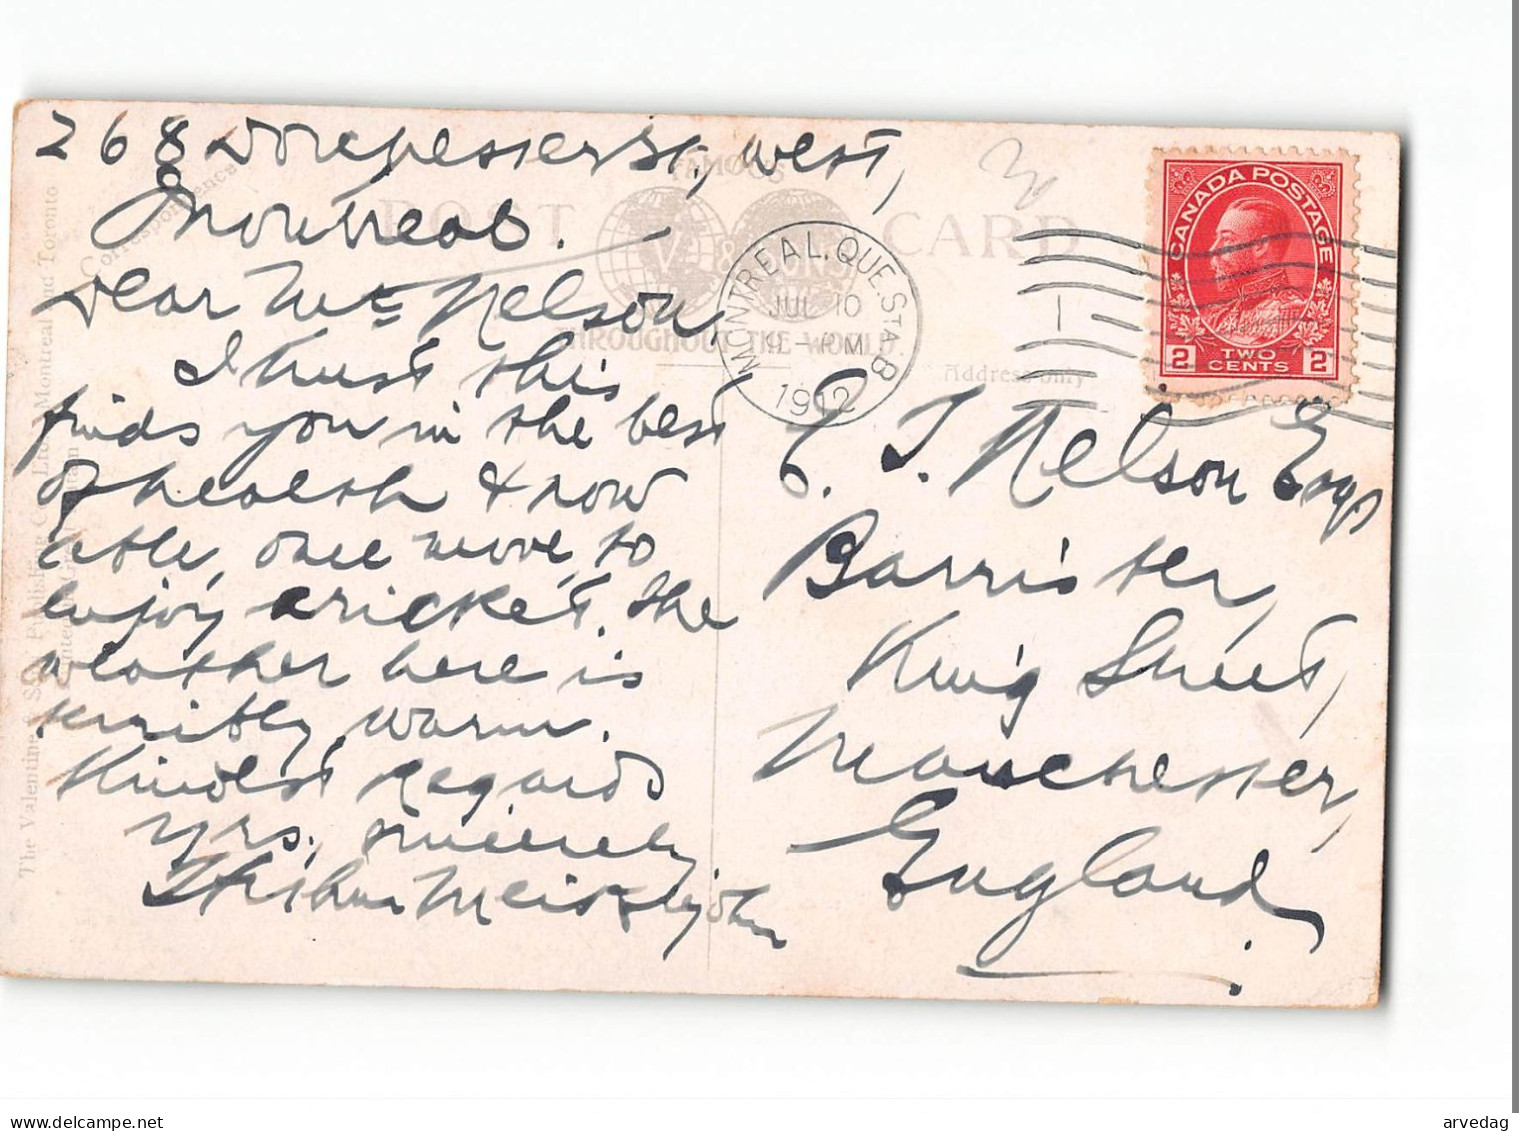 268 Dorchester St., West,
Montreal.
Dear Mr Nelson,
I trust this
finds you in the best
of health & now
able, once more, to
enjoy cricket. The
weather here is
terribly warm.
Kindest regards
Yrs. sincerely
Arthur Meiklejohn
FAMOUS
POST CARD
V & SONS
THROUGHOUT THE WORLD
Correspondence
Address only
The Valentine & Sons Publishing Co., Ltd., Montreal and Toronto
Printed in Great Britain
MONTREAL, QUE. STA B
JUL 10
9 - PM
1912
CANADA POSTAGE
2 TWO CENTS 2
T. Nelson Esq
Barrister,
King Street,
Manchester,
England.
arvedag